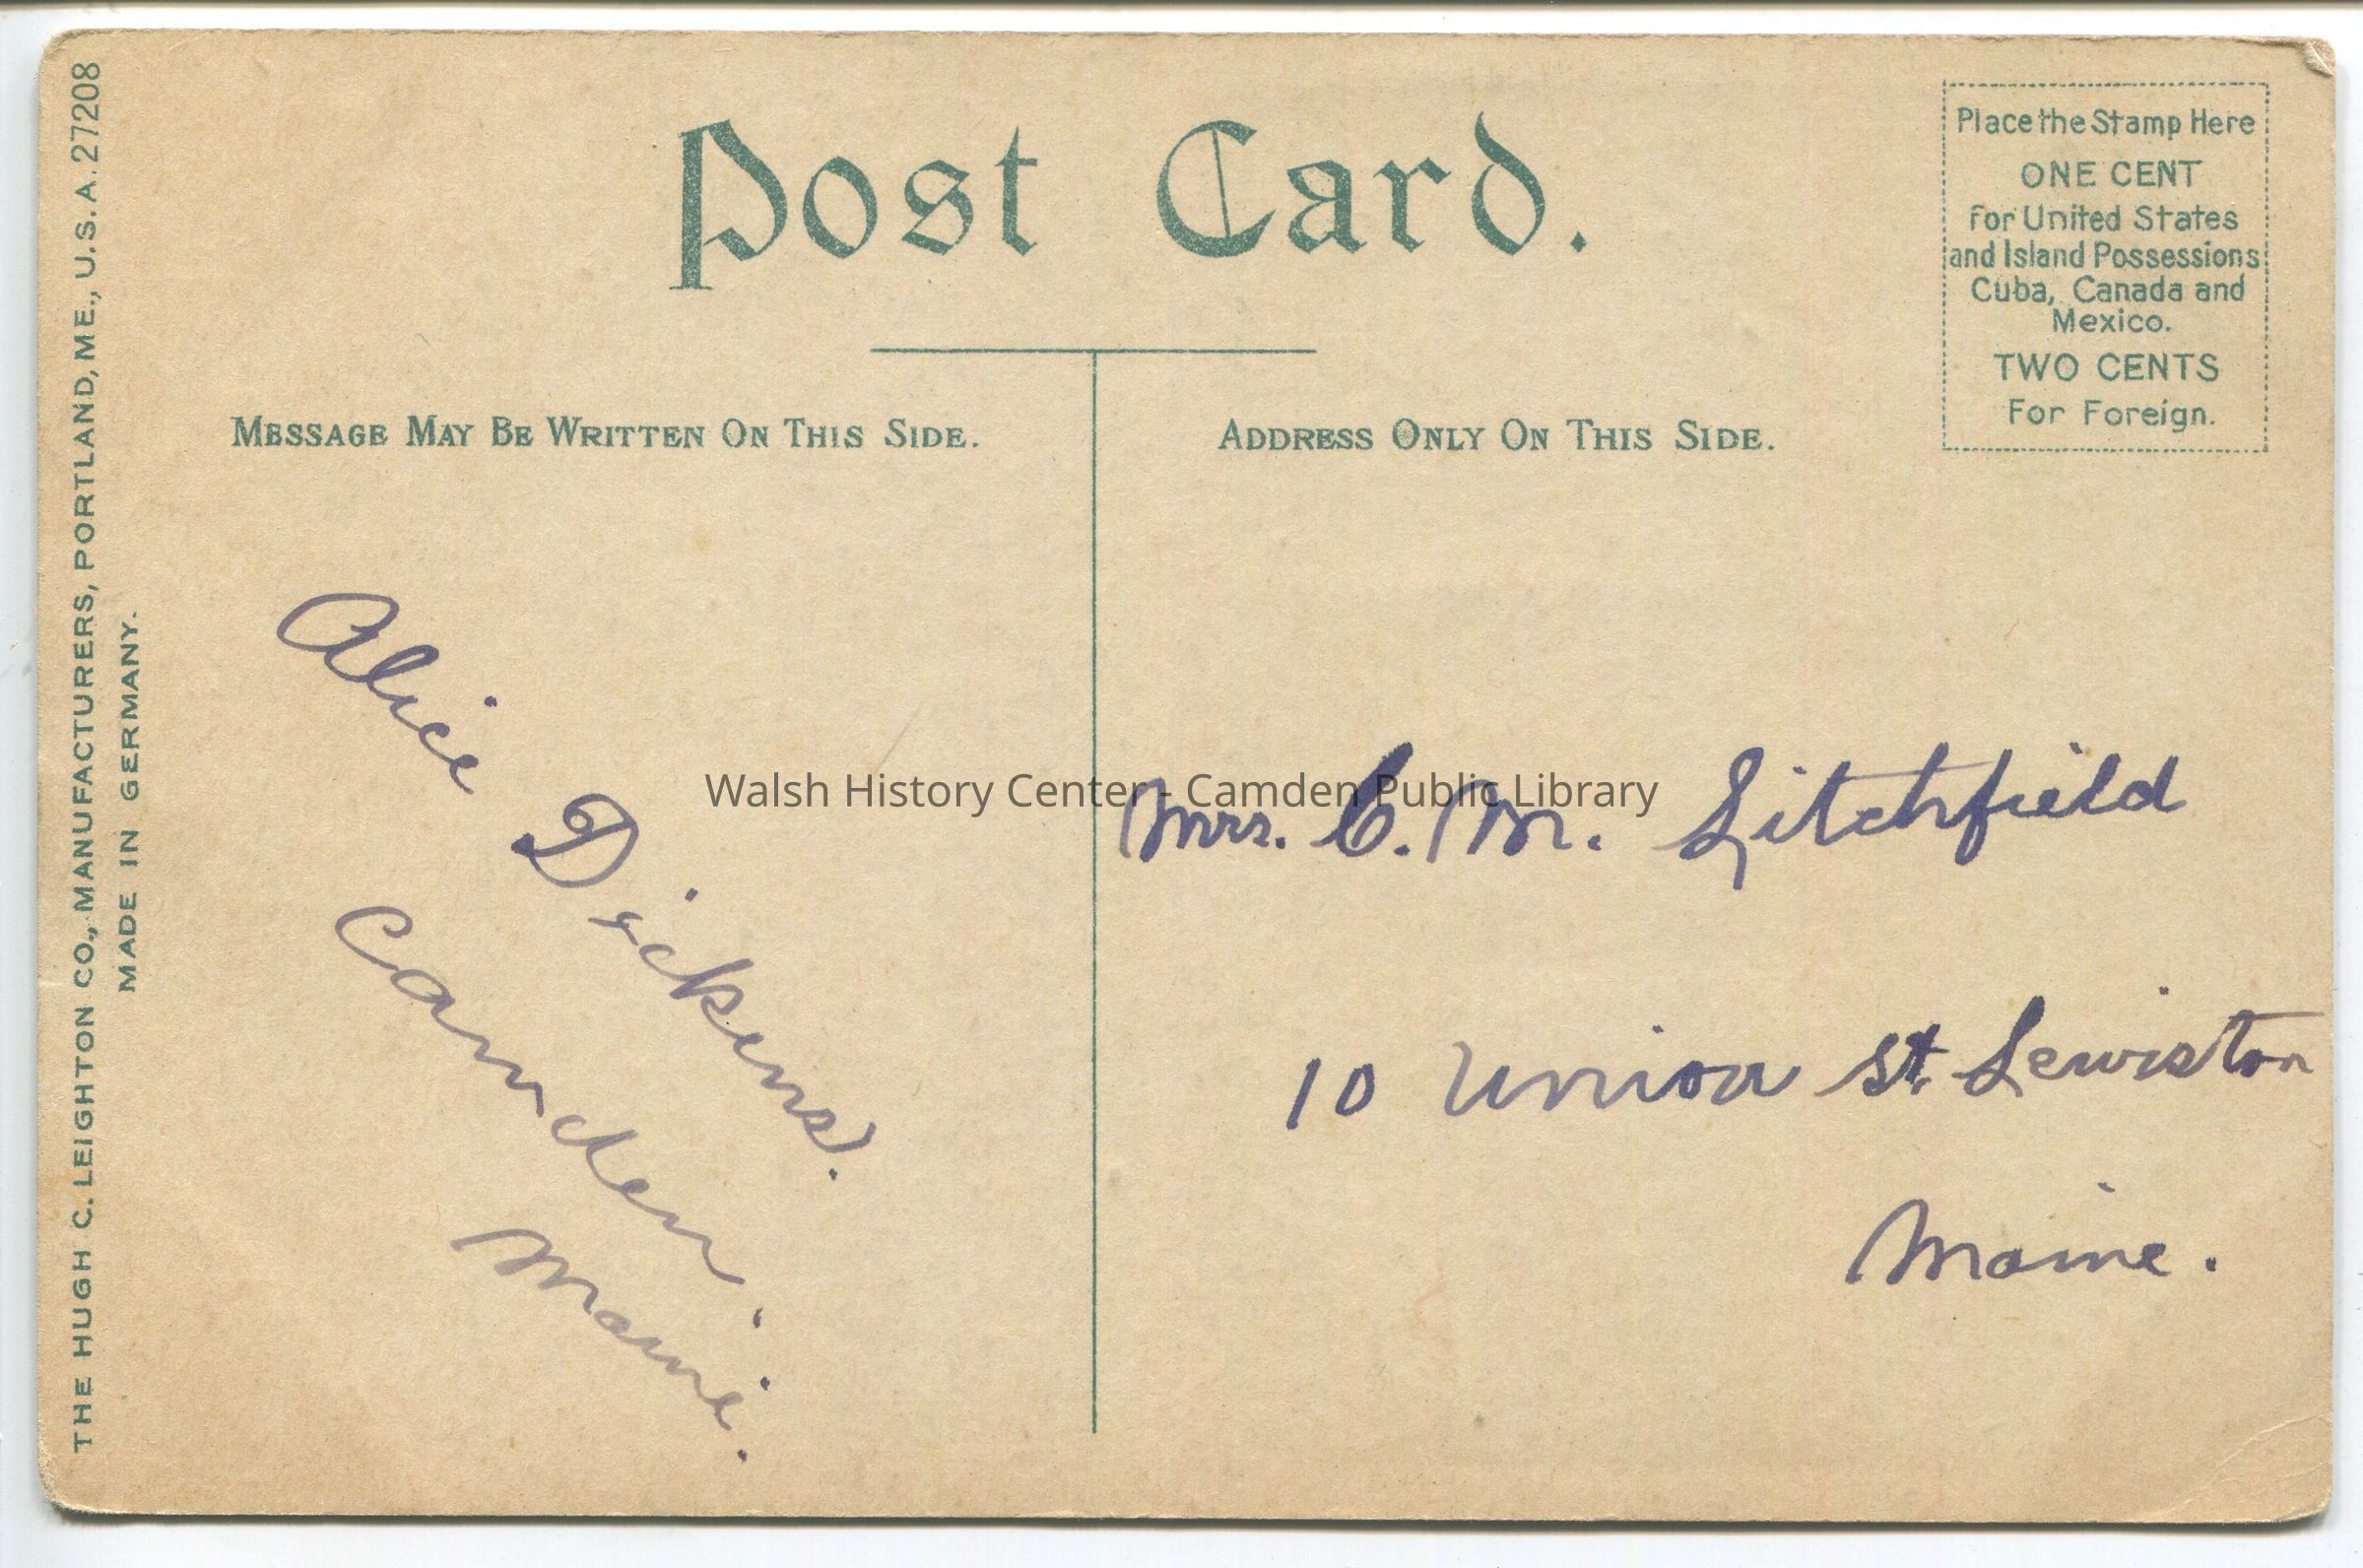 THE HUGH C. LEIGHTON CO., MANUFACTURERS, PORTLAND, ME., U.S.A. 27208
MADE IN GERMANY.
Post Card.
Place the Stamp Here
ONE CENT
for United States
and Island Possessions
Cuba, Canada and
Mexico.
TWO CENTS
For Foreign.
MESSAGE MAY BE WRITTEN ON THIS SIDE.
ADDRESS ONLY ON THIS SIDE.
Alice Dickens.
Camden.
Maine.
Walsh History Center - Camden Public Library
Mrs. C. M. Litchfield
10 Union St. Lewiston
Maine.